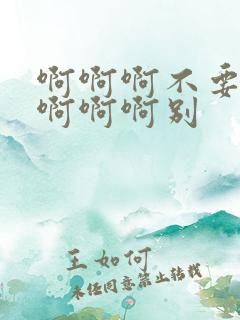 啊啊啊不要
啊啊啊别
王如何
未经同意禁止转载